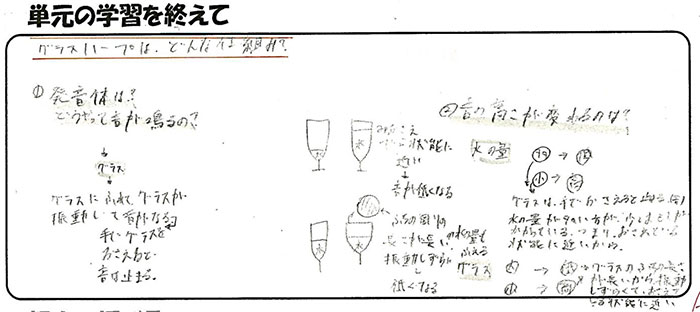 単元の学習を終えて
グラスハープは、どんな仕組み?
① 発音体は?
どうやって音が鳴るの?
↓
グラス
↓
グラスにふれて、グラスが
振動して音がなる
手でグラスを
おさえると
音は止まる。
水
水
おさえ
状態に
近い
↓
音が低くなる
ふちの周りの
長さが長い
振動しずらい
↓
低くなる
② 音の高さが変わるのは?
水の量
大 → 低
小 → 高
グラスは、手でおさえると止まる
水の量が多い方が、
かかっている。つまり、おさえている
状態に近いから。
水の量も
ふえる
グラス
大 → 低
小 → 高
グラスのふちの長さ
が長いから振動
しずらくて、おさえて
いる状態に近い